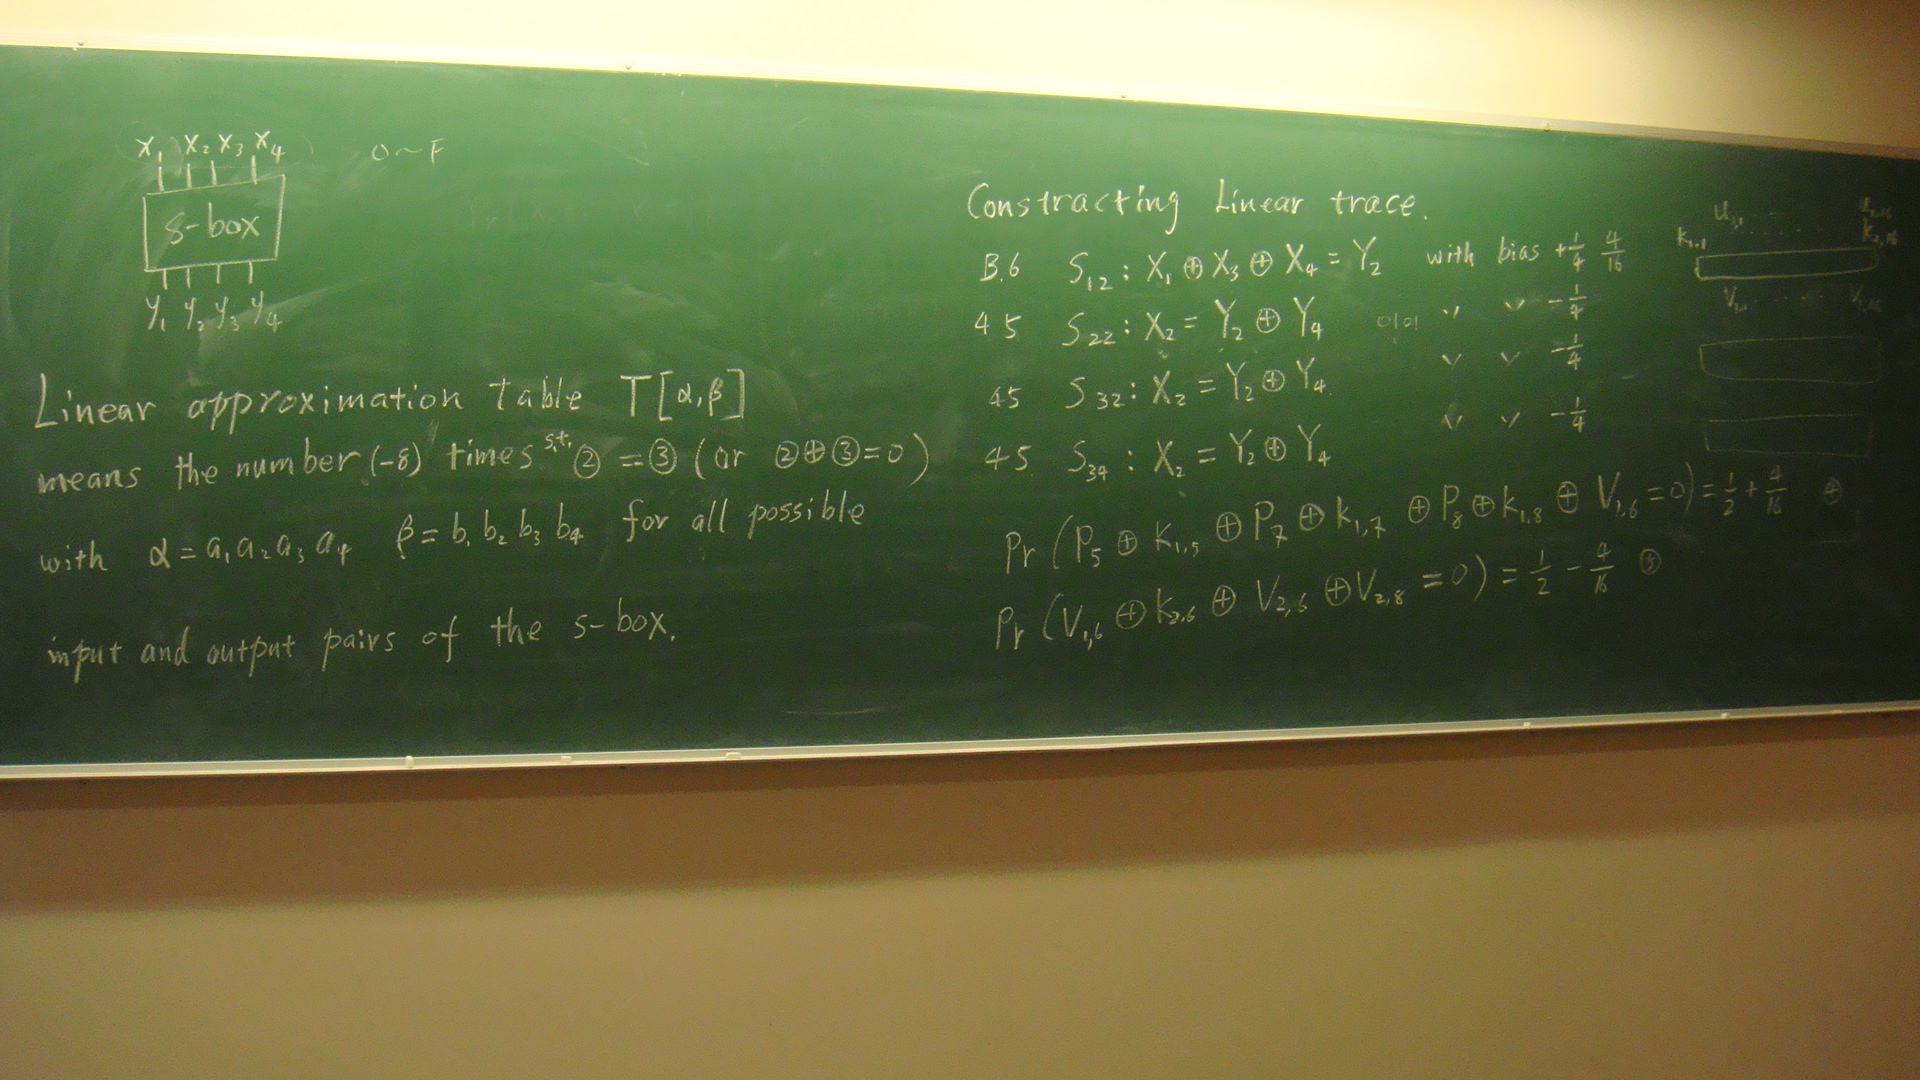 X₁ X₂ X₃ X₄ 0~F
s-box
Y₁ Y₂ Y₃ Y₄
Linear approximation table T[α,β]
means the number (-8) times s.t. ② = ③ (or ②⊕③=0)
with α = a₁ a₂ a₃ a₄ β = b₁ b₂ b₃ b₄ for all possible
input and output pairs of the s-box.
Constracting Linear trace.
B.6 S₁₂ : X₁ ⊕ X₃ ⊕ X₄ = Y₂ with bias +1/4 4/16
45 S₂₂ : X₂ = Y₂ ⊕ Y₄ 0101 〃 〃 -1/4
45 S₃₂ : X₂ = Y₂ ⊕ Y₄ 〃 〃 -1/4
45 S₃₄ : X₂ = Y₂ ⊕ Y₄ 〃 〃 -1/4
Pr (P₅ ⊕ K₁,₅ ⊕ P₇ ⊕ k₁,₇ ⊕ P₈ ⊕ k₁,₈ ⊕ V₁,₆ = 0) = 1/2 + 4/16
Pr (V₁,₆ ⊕ K₂,₆ ⊕ V₂,₆ ⊕ V₂,₈ = 0) = 1/2 - 4/16
K₁,₁